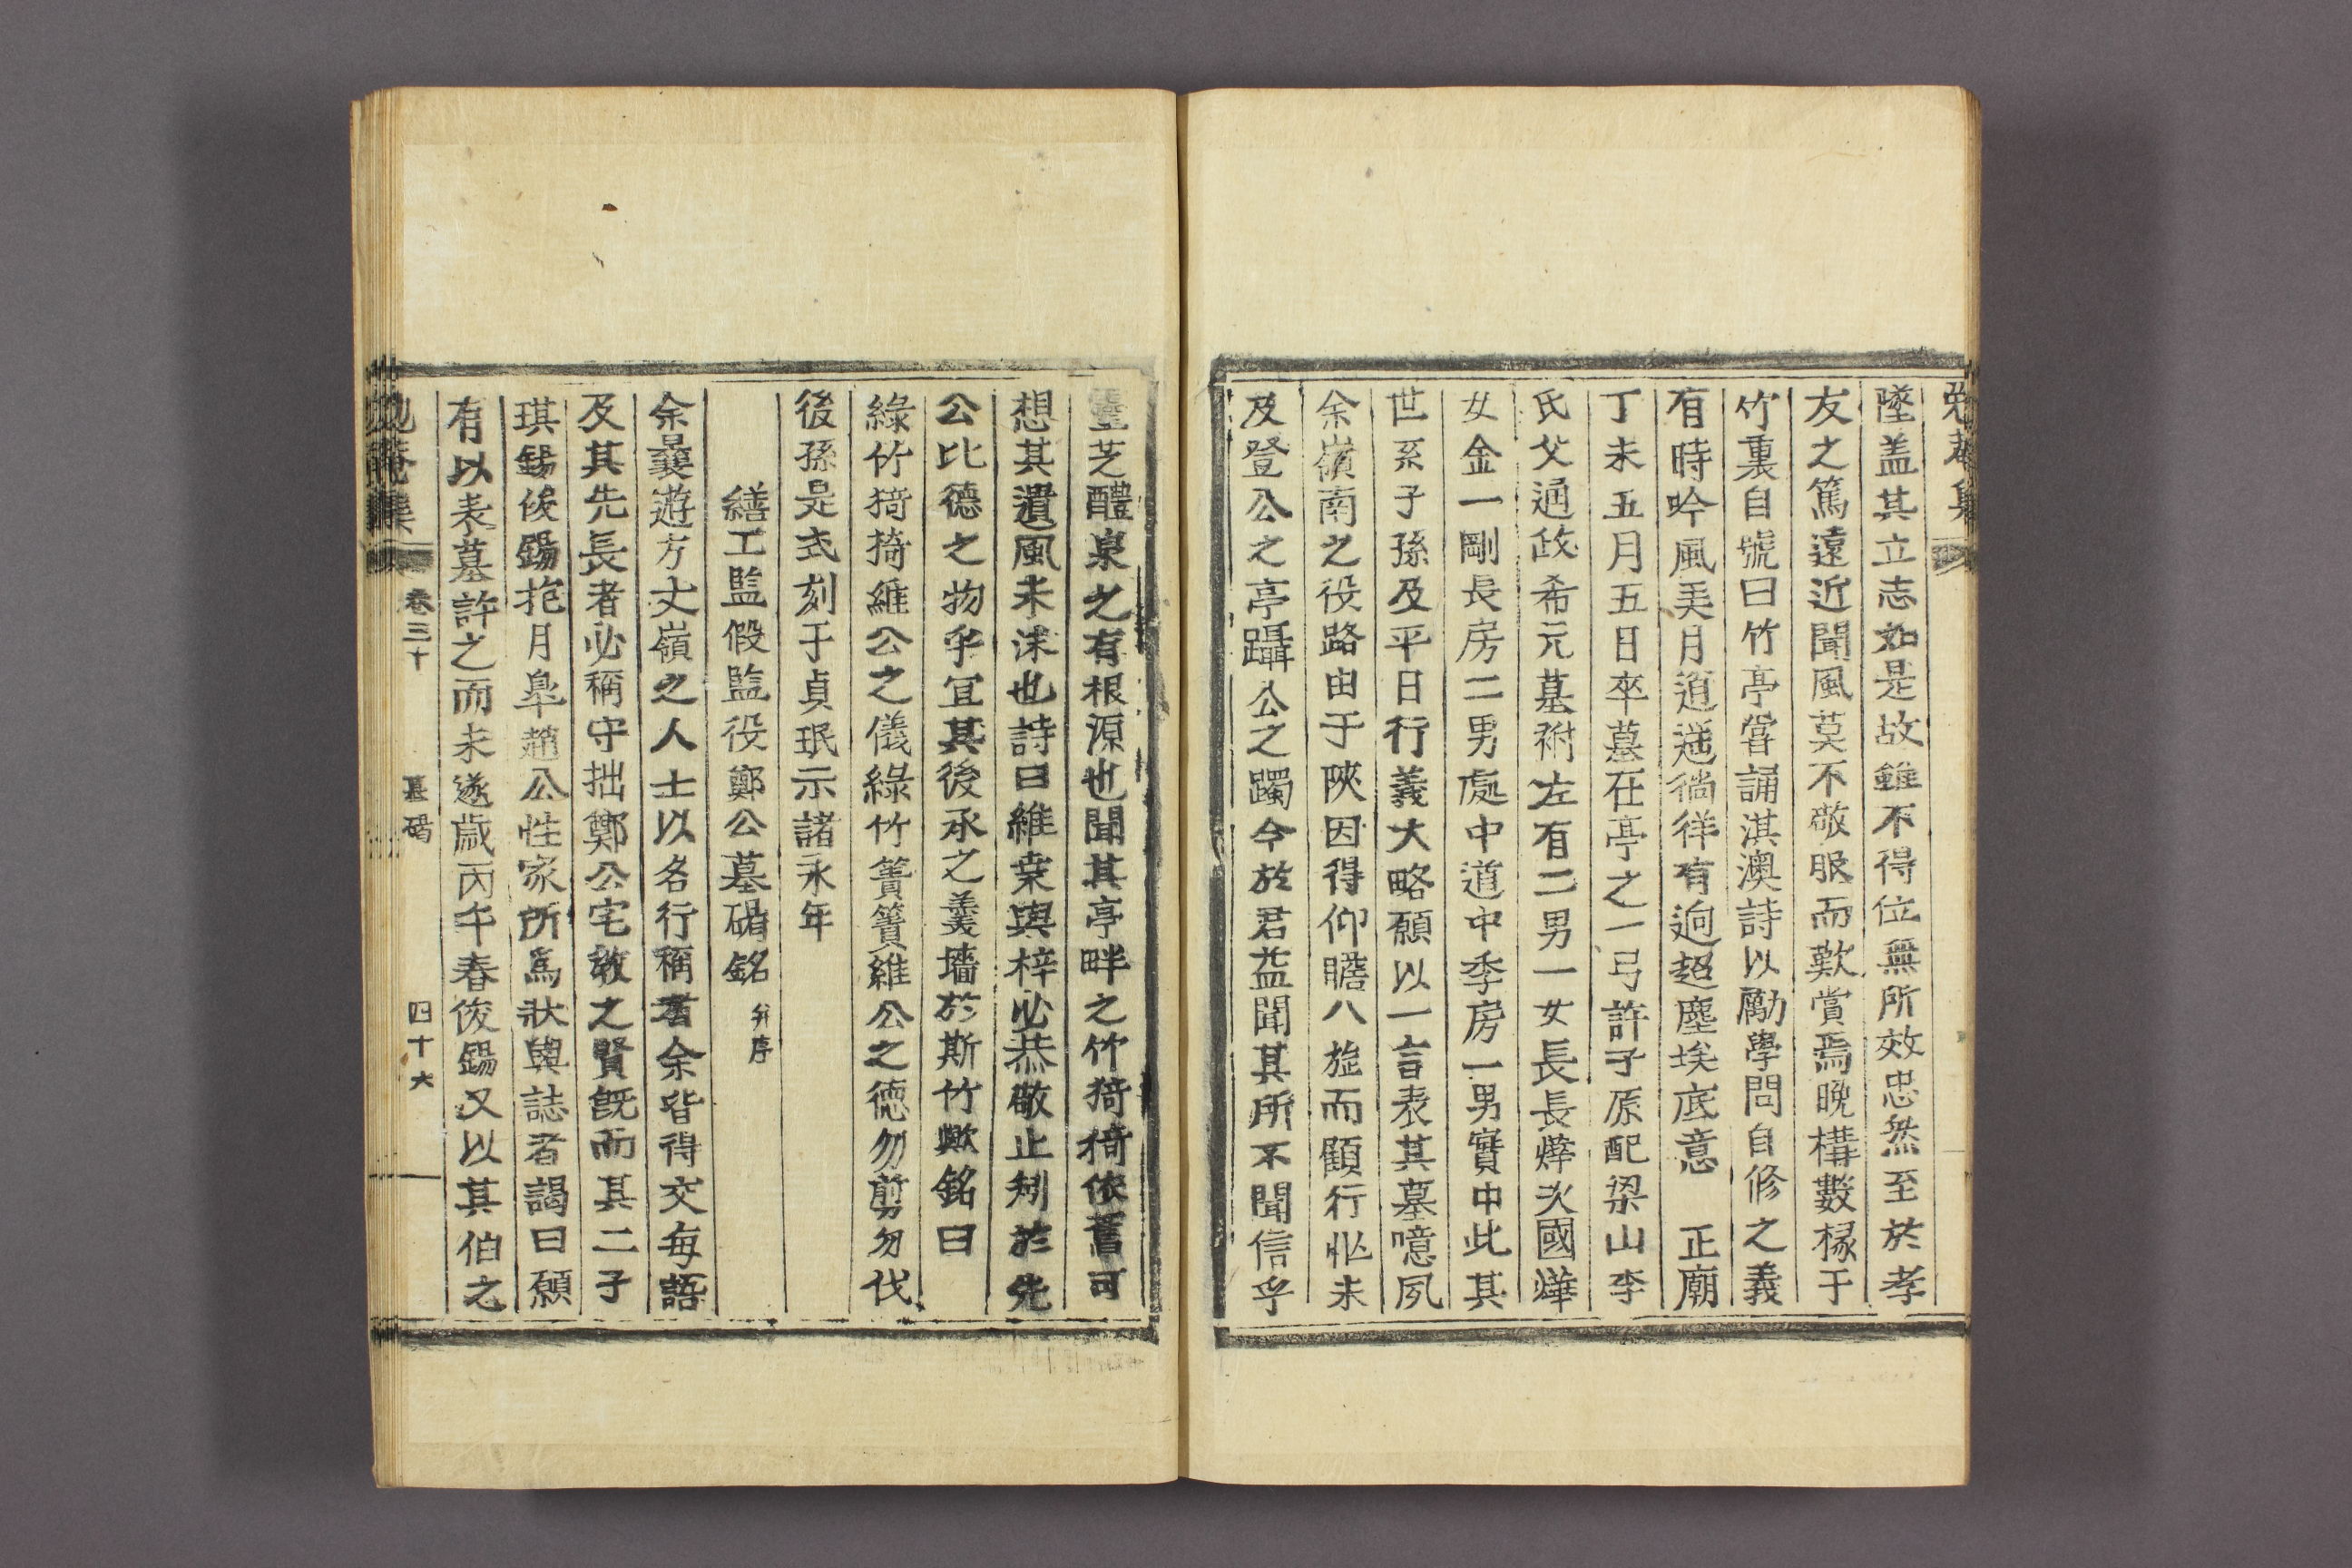 勉菴集
墜盖其立志如是故雖不得位無所效忠然至於孝
友之篤遠近聞風莫不敬服而歎賞焉晚構數椽于
竹裏自號曰竹亭甞誦淇澳詩以勵學問自修之義
有時吟風美月逍遥徜徉有逈超塵埃底意　正廟
丁未五月五日卒墓在亭之一弓許子原配梁山李
氏父通政希元墓祔左有二男一女長長燁次國燁
女金一剛長房二男處中道中季房一男實中此其
世系子孫及平日行義大略願以一言表其墓噫夙
余嶺南之役路由于陜因得仰瞻八旋而顧行忙未
及登公之亭躡公之躅今於君益聞其所不聞信乎
靈芝醴泉之有根源也聞其亭畔之竹猗猗依舊可
想其遺風未沬也詩曰維桒與梓必恭敬止矧於先
公比德之物乎宜其後承之羹墻於斯竹歟銘曰
綠竹猗猗維公之儀綠竹簀簀維公之德勿剪勿伐
後孫是式刻于貞珉示諸永年
繕工監假監役鄭公墓碣銘 幷序
余曩遊方丈嶺之人士以名行稱者余皆得交每語
及其先長者必稱守拙鄭公宅敎之賢旣而其二子
琪錫俊錫抱月皐趙公性家所爲狀與誌者謁曰願
有以表墓許之而未遂歲丙午春俊錫又以其伯之
勉菴集 卷三十 墓碣 四十六